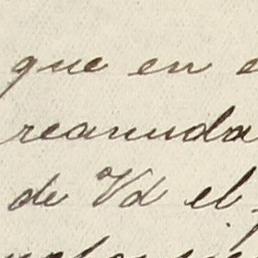 que en e
reanuda
de Vd el